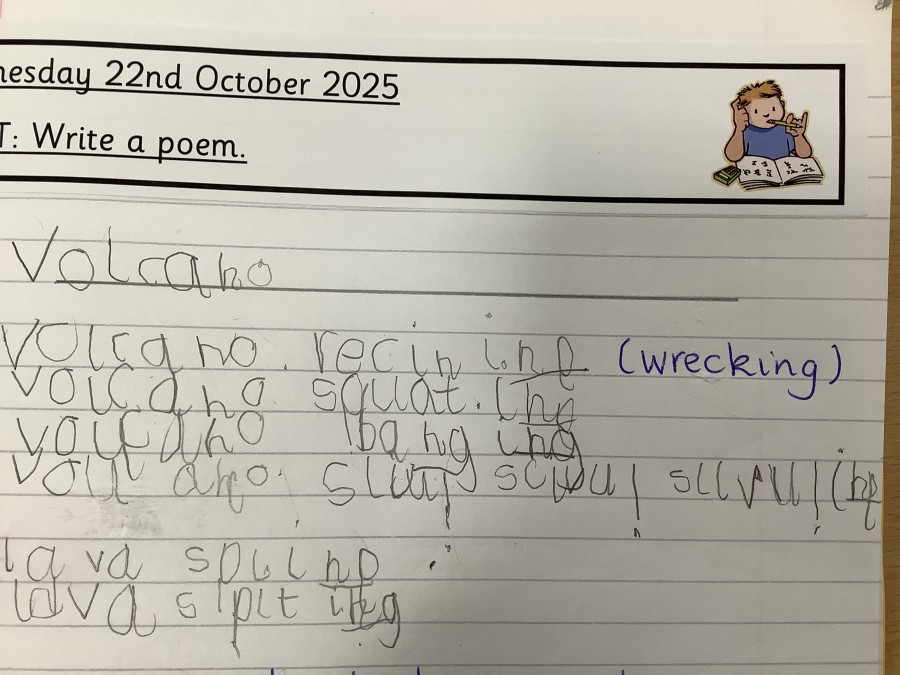 nesday 22nd October 2025
T: Write a poem.
Volcano
Volcano recin ing (wrecking)
volcano squat.ing
volcano banging
volcano
lava
lava split ing